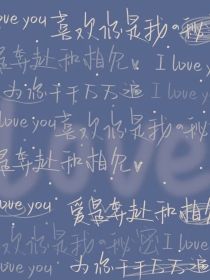 love you 喜欢你是我の秘
爱是奔赴和相见 I love y
为你千千万万遍 I love y
love you 喜欢你是我の
是奔赴和相见
love
ove you 爱是奔赴和相
欢你是我の秘密 I love
love you 为你千千万万遍